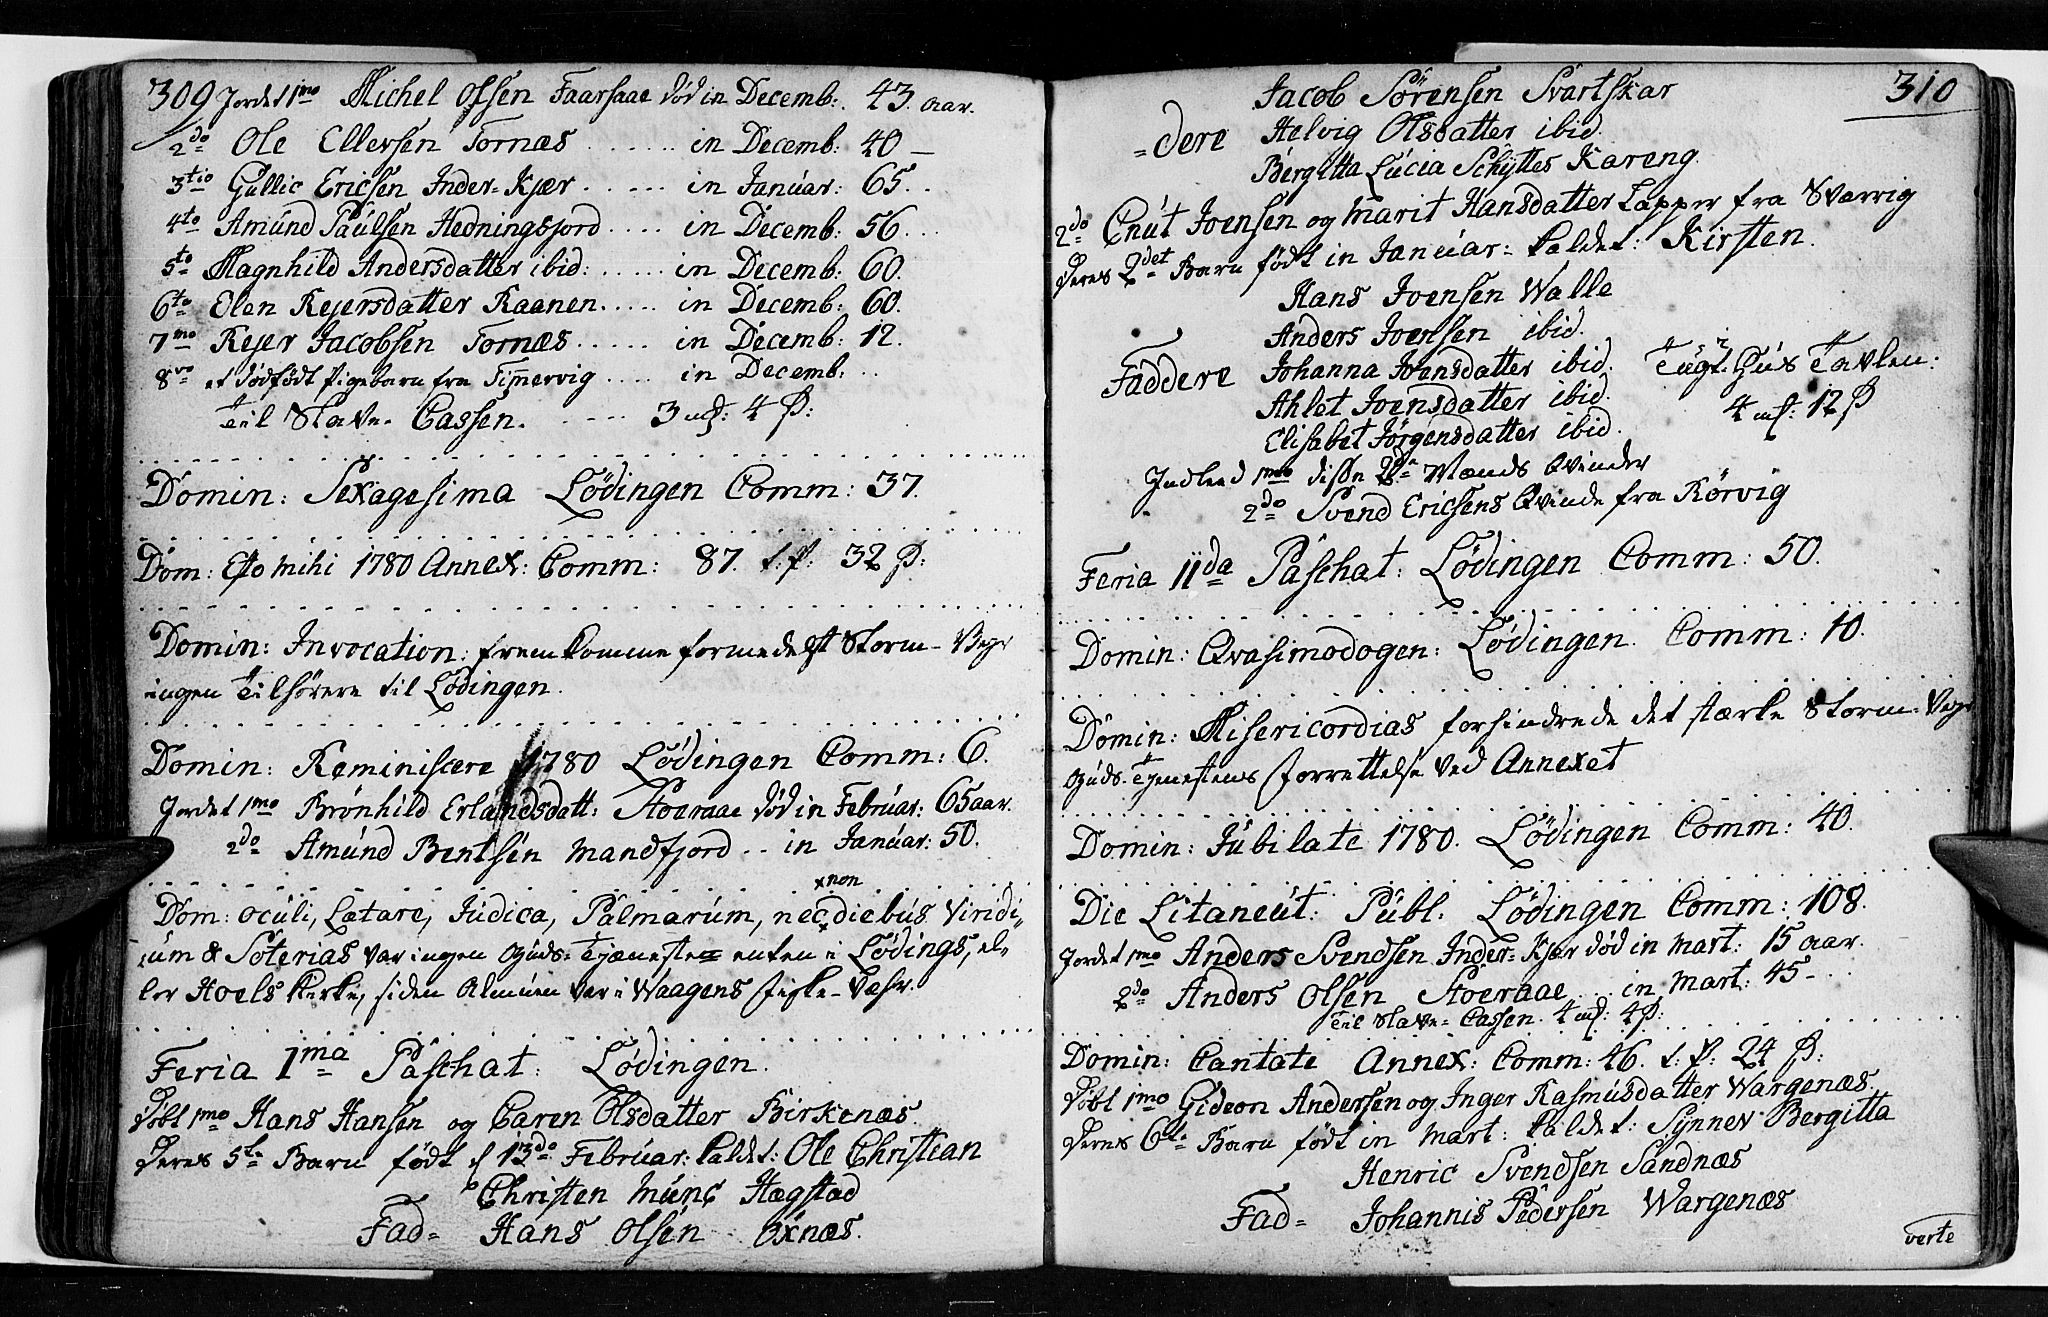 309 Jordet 1mo Michel Olsen Faarsaae død in Decemb: 43 aar.
2do Ole Ellersen Tornæs ...... in Decemb: 40 —
3tio Gullic Ericsen Inder-Kjær ...... in Januar: 65..
4to Amund Paulsen Hedningsfjord .... in Decemb: 56...
5to Magnhild Andersdatter ibid: ...... in Decemb: 60.
6to Elen Rejersdatter Raanen ..... in Decemb: 60.
7mo Rejer Jacobsen Tornæs ..... in Decemb: 12.
8vo et dødfødt Pigebarn fra Timmervig .... in Decemb: ..
Til Slave-Cassen. .... 3 mß: 4 ß:
Domin: Sexagesima Lödingen Comm: 37.
Dom: Esto mihi 1780 Annex: Comm: 87. t. p: 32 ß:
Domin: Invocation: fremkomme formedelst Storm-Vejr
ingen Tilhörere til Lödingen.
Domin: Reminiscere 1780 Lödingen Comm: 6.
Jordet 1mo Brönhild Erlandsdatt: Stoeraae död in Februar: 65 aar.
2do Amund Bentsen Mandfjord .. in Januar: 50.
Dom: Oculi, Lætare, Judica, Palmarum, nec non diebus Viridi=
ium & Soterias var ingen Guds-Tjæneste enten i Lödings, el-
ler Hoels Kirke, siden Almuen var i Waagens Fiske-Vær.
Feria 1ma Paschat: Lödingen.
Döbt 1mo Hans Hansen og Caren Olsdatter Birkenæs.
Deres 5te Barn födt d 13do Februar: kaldet: Ole Christian
Christen Munc Hegstad
Fad= Hans Olsen Oxnæs.
310
Jacob Sörensen Svartskar
=dere Helvig Olsdatter ibid.
Bergitta Lucia Schyttes Kareng.
2do Cnut Joensen og Marit Hansdatter Lapper fra Sværrig
Deres 2det Barn födt in Januar: kaldet: Kirsten.
Hans Joensen Walle
Anders Joensen ibid.
Faddere Johanna Joensdatter ibid. Tugt-Hus Tavlen:
Ahlet Joensdatter ibid. 4 mß: 12 ß
Elisabet Jörgensdatter ibid.
Indleed 1mo disse 2de Mænds Qvinder
2do Svend Ericsens Qvinde fra Rörvig
Feria IIda Paschat: Lödingen Comm: 50.
Domin: Qvasimodogen: Lödingen. Comm: 10.
Domin: Misericordias forhindrede det stærke Storm-Vejr
Guds-Tjenestens Forrettelse ved Annexet
Domin: Jubilate 1780. Lödingen Comm: 40.
Die Litaneut: Publ. Lödingen Comm: 108.
Jordet 1mo Anders Svendsen Inder-Kjær död in Mart: 15 aar.
2do Anders Olsen Stoeraae ... in Mart: 45 -..
Til Slave-Cassen. 4 mß: 4 ß:
Domin: Cantate Annex: Comm: 46. t: p: 24 ß:
Döbt 1mo Gideon Andersen og Inger Rasmusdatter Wargenæs.
Deres 6te Barn födt in Mart: kaldet: Synnev Bergitta
Henric Svendsen Sandnæs
Fad= Johannis Pedersen Wargenæs
verte